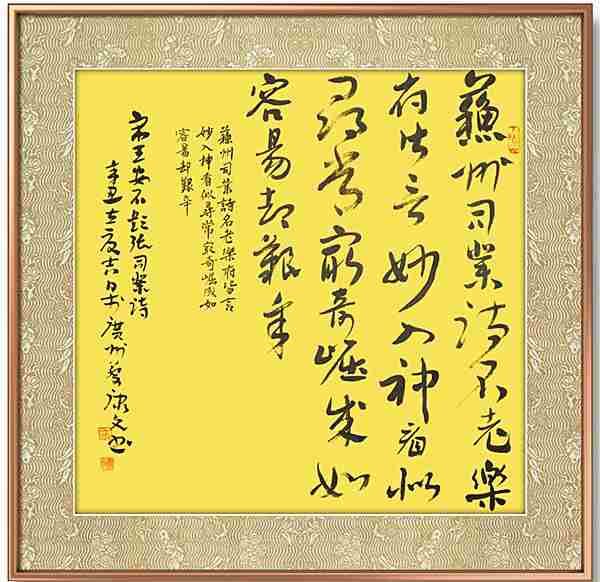 蘇州司業詩名老樂
府皆言妙入神看似
尋常冣奇崛成如
容易却艱辛
蘇州司業詩名老樂府皆言
妙入神看似尋常冣奇崛成如
容易却艱辛
宋王安石題張司業詩
辛丑夏吉日於廣州康文書